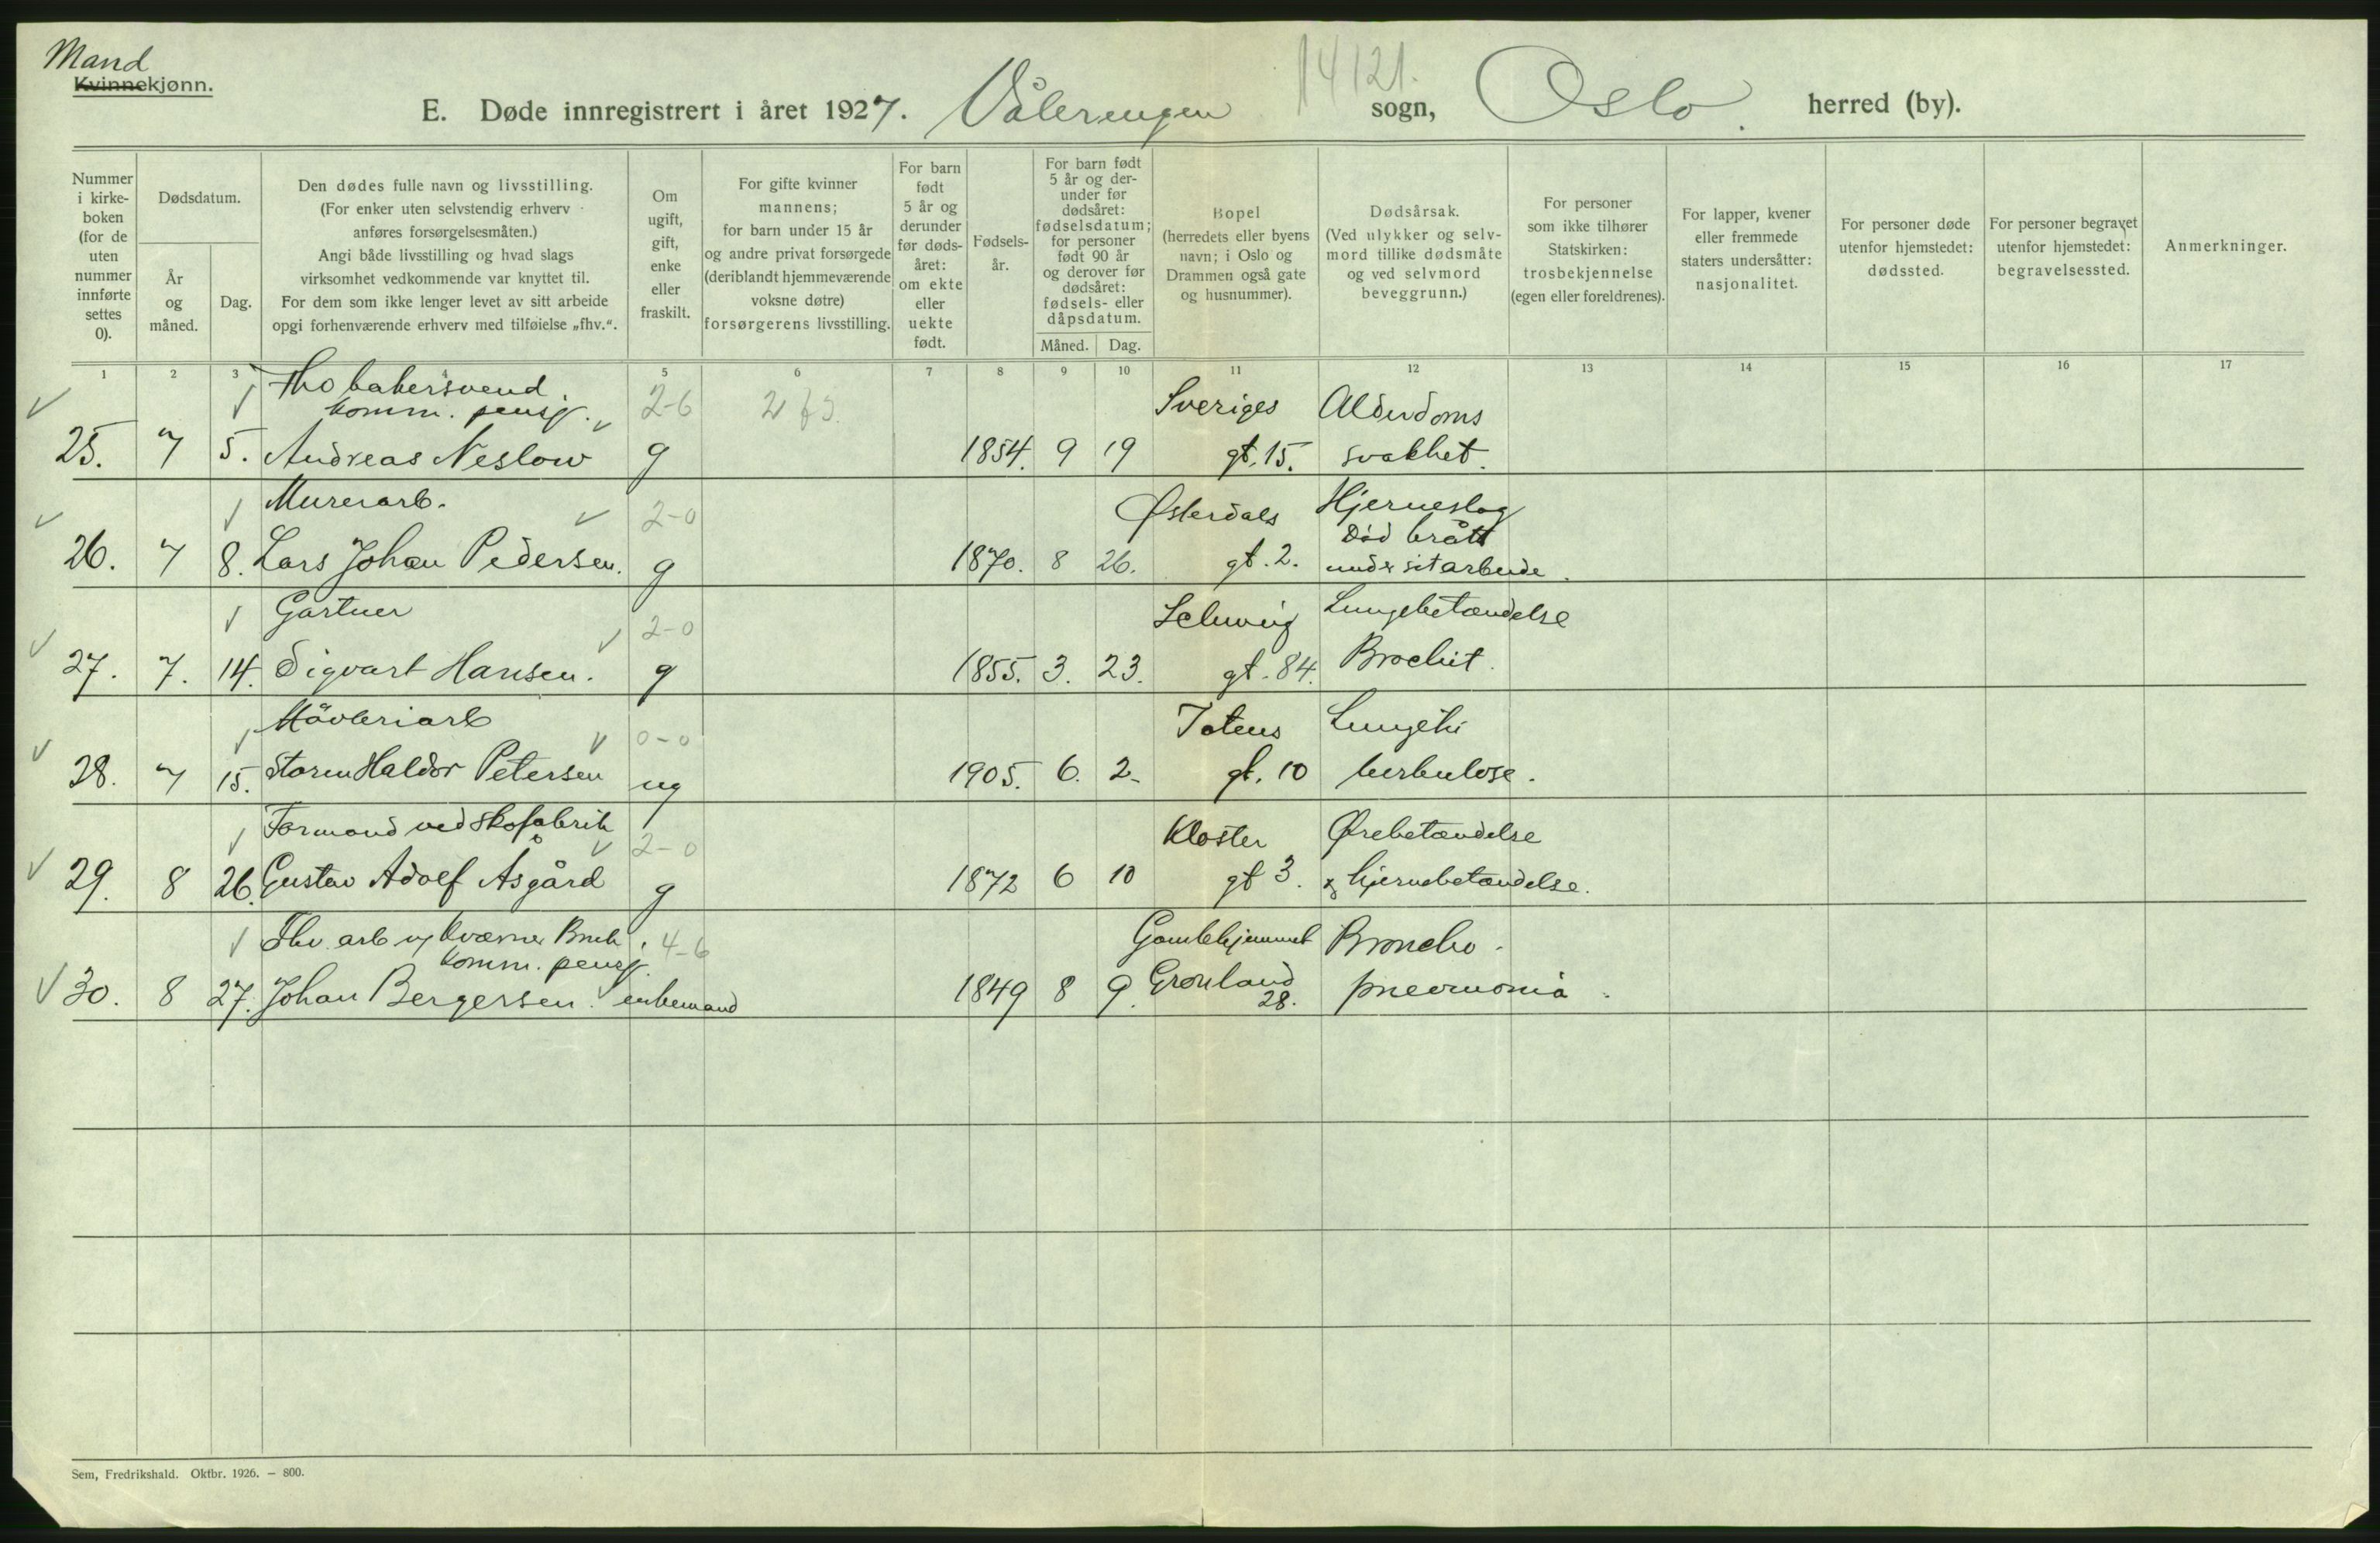 Mand
Kvinnekjønn.
14121.
E. Døde innregistrert i året 1927. Vålerengen sogn, Oslo herred (by).
Nummer i kirke-boken (for de uten nummer innførte settes 0).
Dødsdatum.
År og måned.
Dag.
Den dødes fulle navn og livsstilling.
(For enker uten selvstendig erhverv
anføres forsørgelsesmåten.)
Angi både livsstilling og hvad slags
virksomhet vedkommende var knyttet til.
For dem som ikke lenger levet av sitt arbeide
opgi forhenværende erhverv med tilføielse „fhv.“.
Om ugift, gift, enke eller fraskilt.
For gifte kvinner
mannens;
for barn under 15 år
og andre privat forsørgede
(deriblandt hjemmeværende
voksne døtre)
forsørgerens livsstilling.
For barn født 5 år og derunder før døds-året: om ekte eller uekte født.
Fødsels-år.
For barn født
5 år og der-
under før
dødsåret:
fødselsdatum;
for personer
født 90 år
og derover før
dødsåret:
fødsels- eller
dåpsdatum.
Måned. Dag.
Bopel
(herredets eller byens
navn; i Oslo og
Drammen også gate
og husnummer).
Dødsårsak.
(Ved ulykker og selv-
mord tillike dødsmåte
og ved selvmord
beveggrunn.)
For personer
som ikke tilhører
Statskirken:
trosbekjennelse
(egen eller foreldrenes).
For lapper, kvener
eller fremmede
staters undersåtter:
nasjonalitet.
For personer døde
utenfor hjemstedet:
dødssted.
For personer begravet
utenfor hjemstedet:
begravelsessted.
Anmerkninger.
1 2 3 4 5 6 7 8 9 10 11 12 13 14 15 16 17
Fhv bakersvend. 2-6 Sveriges Alderdoms
komm. pensj.
25. 7 5. Andreas Neslow g 1854. 9 19 gt. 15. svakhet.
Murerarb. 2-0 Østerdals Hjerneslag
Död brått
26. 7 8. Lars Johan Pedersen. g 1870. 8 26. gt. 2. under sit arbeide.
Gartner 2-0 Schweig Lungebetændelse
27. 7. 14. Sigvart Hansen. g 1855. 3. 23. gt. 84. Brochit.
Növleriarb 0-0 Totens Lungetu
28. 7 15. Storm Haldor Petersen ug 1905. 6. 2. gt. 10 berkulose.
Formand ved skofabrik 2-0 Kloster Ørebetændelse
29. 8 26. Gustav Adolf Asgård g 1872 6 10 gt 3. & hjernebetændelse.
Fhv. arb v/ Kværner Bruk. 4-6 Gamlehjemmet Broncho-
komm. pensj.
30. 8 27. Johan Bergersen. enkemand 1849 8 9. Grönland 28. pneumonia.
Sem, Fredrikshald. Oktbr. 1926. — 800.